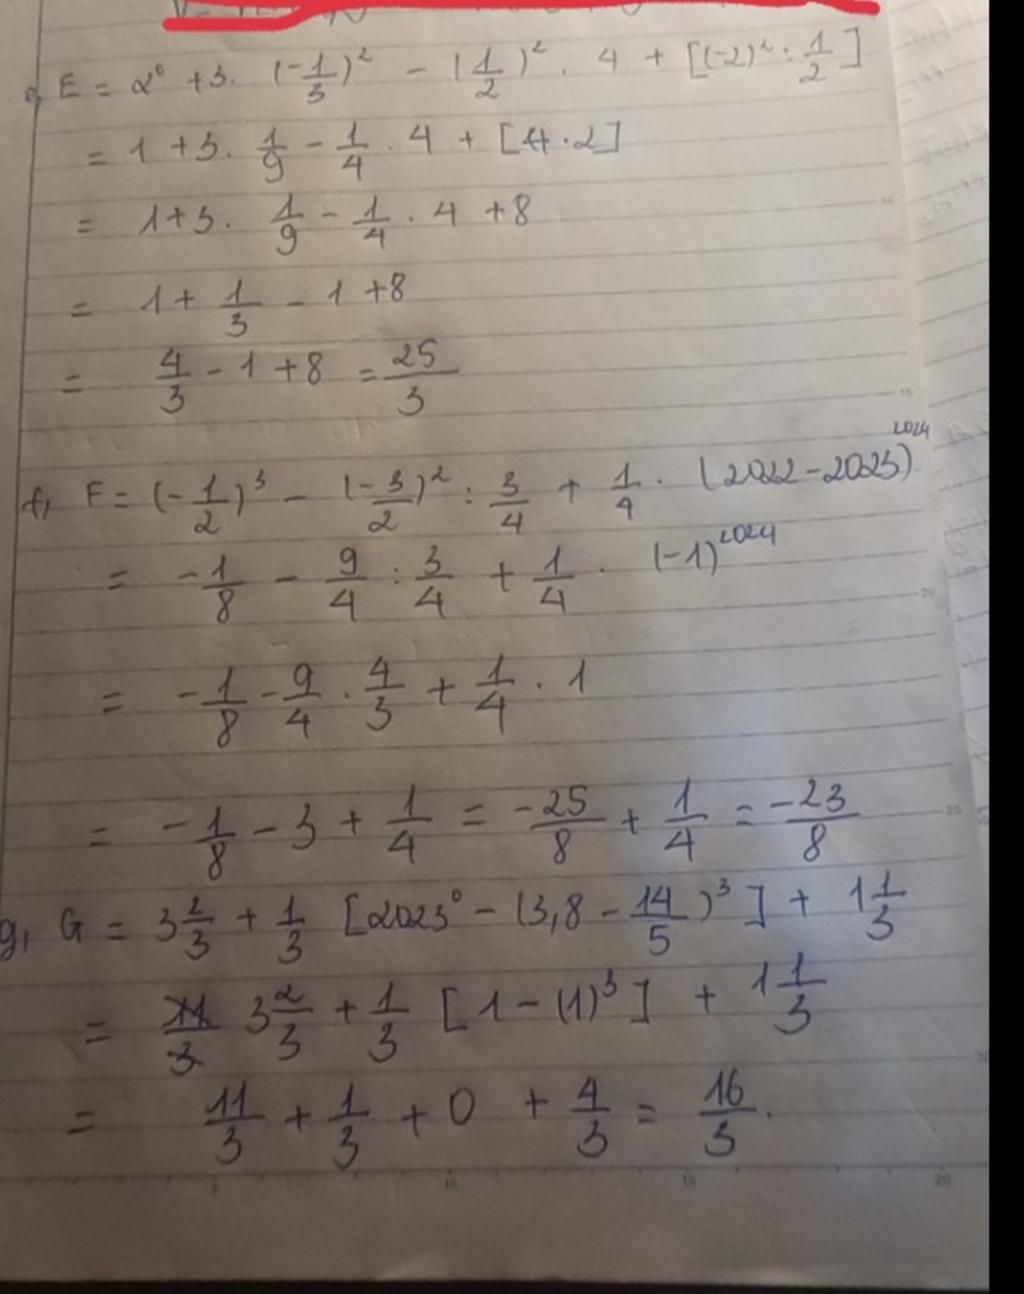 E = 2⁰ + 3. (-1/3)² - (1/2)². 4 + [(-2)² : 1/2]
= 1 + 3. 1/9 - 1/4 . 4 + [4.2]
= 1 + 3. 1/9 - 1/4 . 4 + 8
= 1 + 1/3 - 1 + 8
= 4/3 - 1 + 8 = 25/3
f, F = (-1/2)³ - (-3/2)² : 3/4 + 1/4 . (2022 - 2023)²⁰²⁴
= -1/8 - 9/4 : 3/4 + 1/4 . (-1)²⁰²⁴
= -1/8 - 9/4 . 4/3 + 1/4 . 1
= -1/8 - 3 + 1/4 = -25/8 + 1/4 = -23/8
g, G = 3 2/3 + 1/3 [2023⁰ - (3,8 - 14/5)³] + 1 1/3
= 3 2/3 + 1/3 [1 - (1)³] + 1 1/3
= 11/3 + 1/3 + 0 + 4/3 = 16/3.